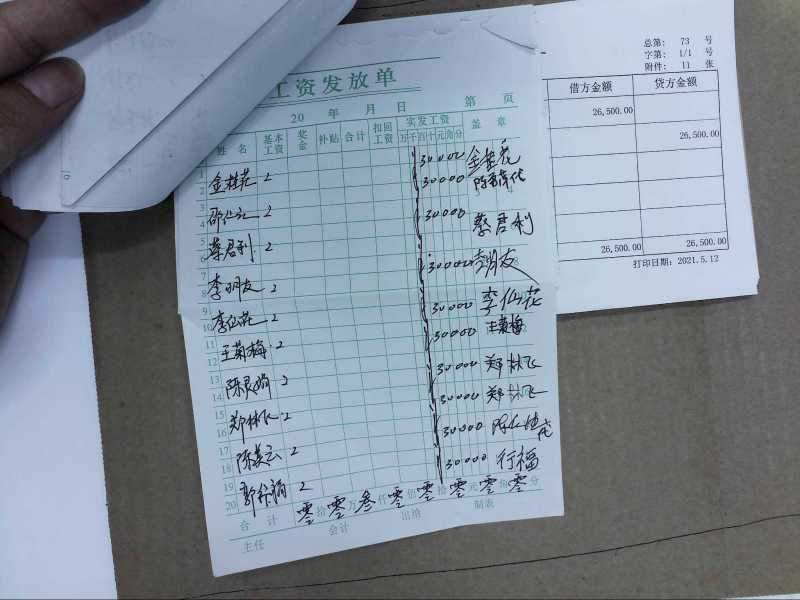 工资发放单
20 年 月 日 第 页
姓名 基本工资 奖金 补贴 合计 扣回工资 实发工资 万千百十元角分 盖章
1 金桂花 2 30000 金桂花
2
3 2 30000
4
5 蔡君利 2 30000 蔡君利
6
7 李明友 2 30000
8
9 李仙花 2 30000 李仙花
10
11 王菊梅 2 30000 王菊梅
12
13 2 30000 郑林飞
14
15 郑林飞 2 30000 郑林飞
16
17 陈美云 2 30000
18
19 2 30000 行福
20
合计 零拾零万叁仟零佰零拾零元零角零分
主任 会计 出纳 制表
总第: 73 号
字第: 1/1 号
附件: 11 张
借方金额 贷方金额
26,500.00
26,500.00
26,500.00 26,500.00
打印日期: 2021.5.12